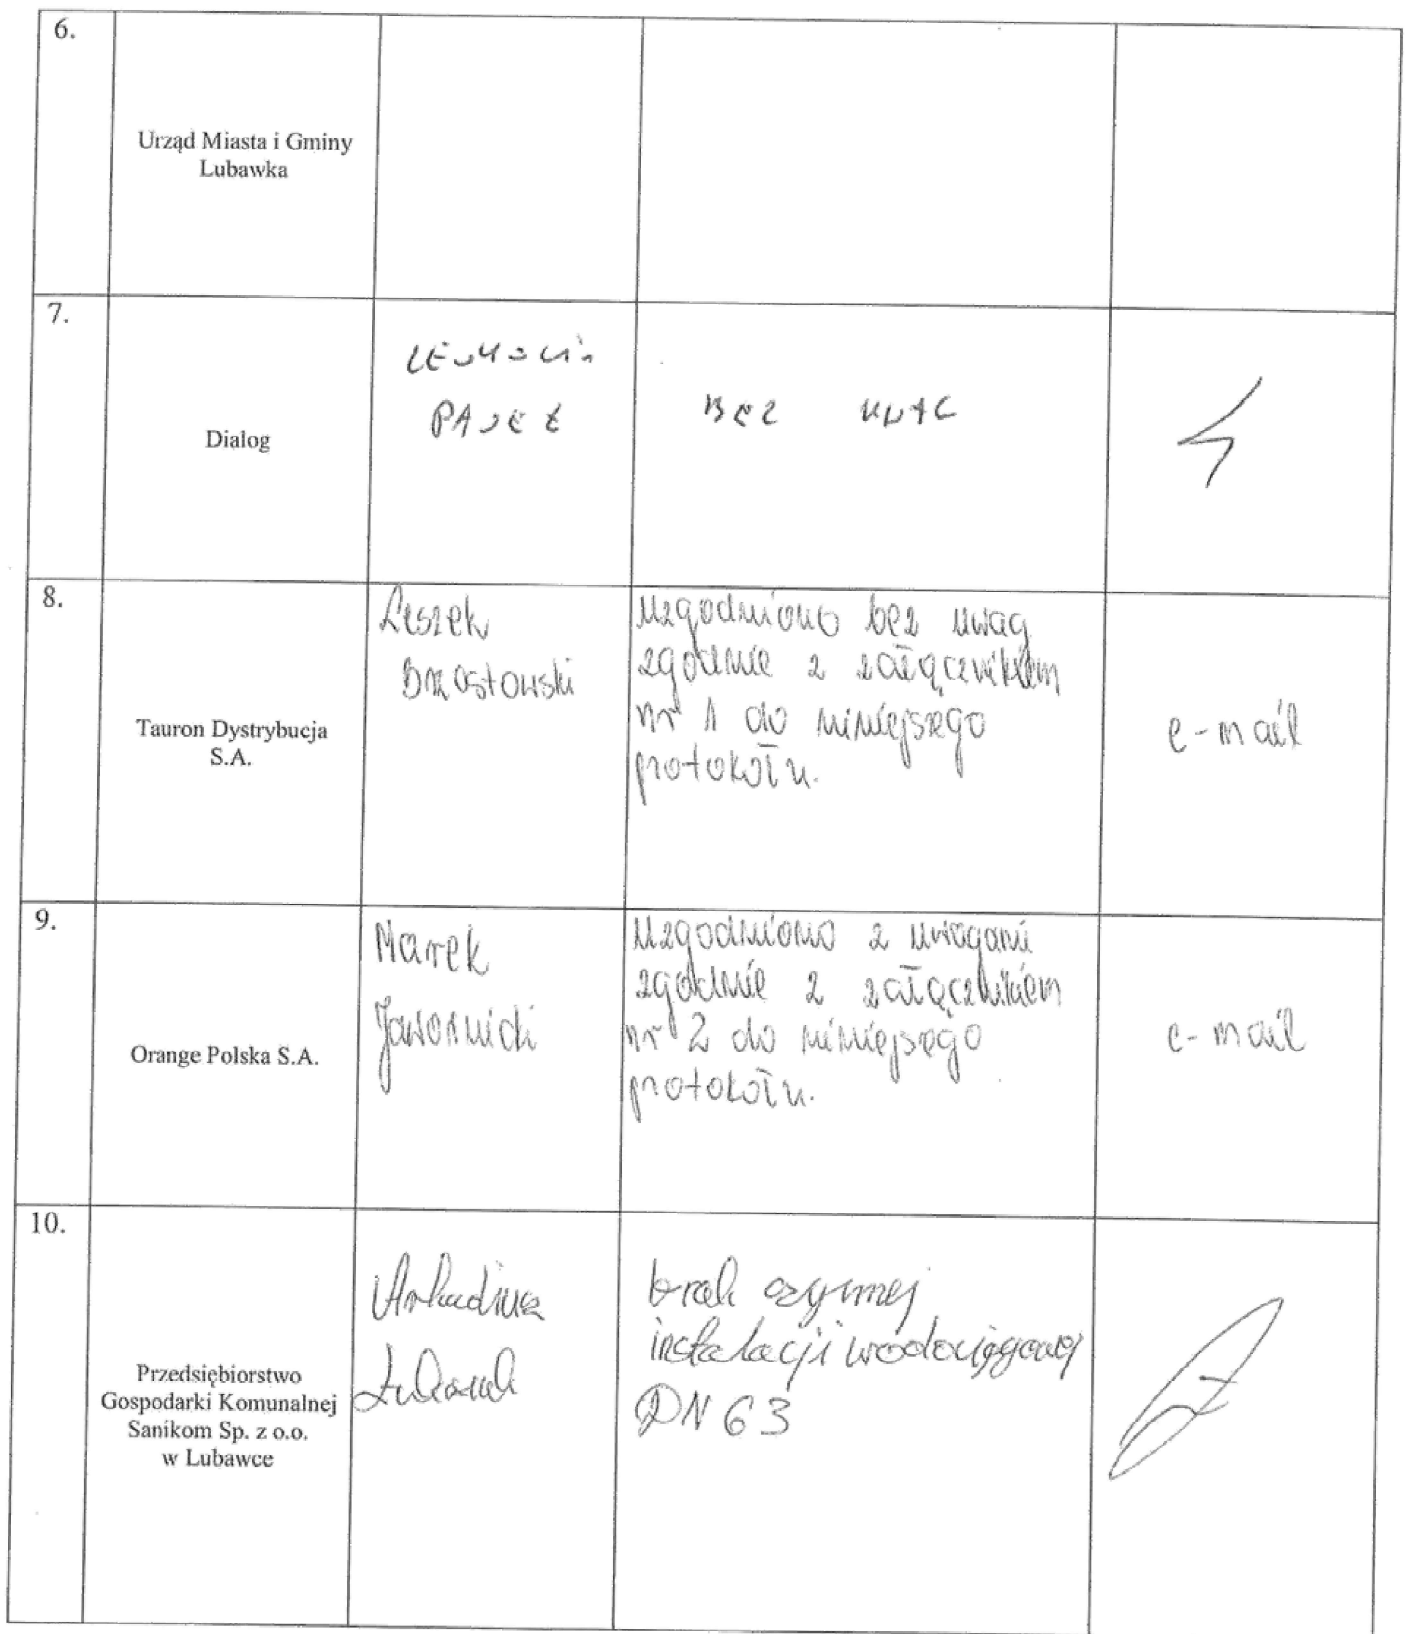 6.
Urząd Miasta i Gminy
Lubawka
7.
Dialog
PAWEŁ
BEZ UWAG
8.
Tauron Dystrybucja
S.A.
Leszek
Brzostowski
uzgodniono bez uwag
zgodnie z załącznikiem
nr 1 do niniejszego
protokołu.
e-mail
9.
Orange Polska S.A.
Marek
Jawornicki
uzgodniono z uwagami
zgodnie z załącznikiem
nr 2 do niniejszego
protokołu.
e-mail
10.
Przedsiębiorstwo
Gospodarki Komunalnej
Sanikom Sp. z o.o.
w Lubawce
Arkadiusz
brak czynnej
instalacji wodociągowej
DN 63